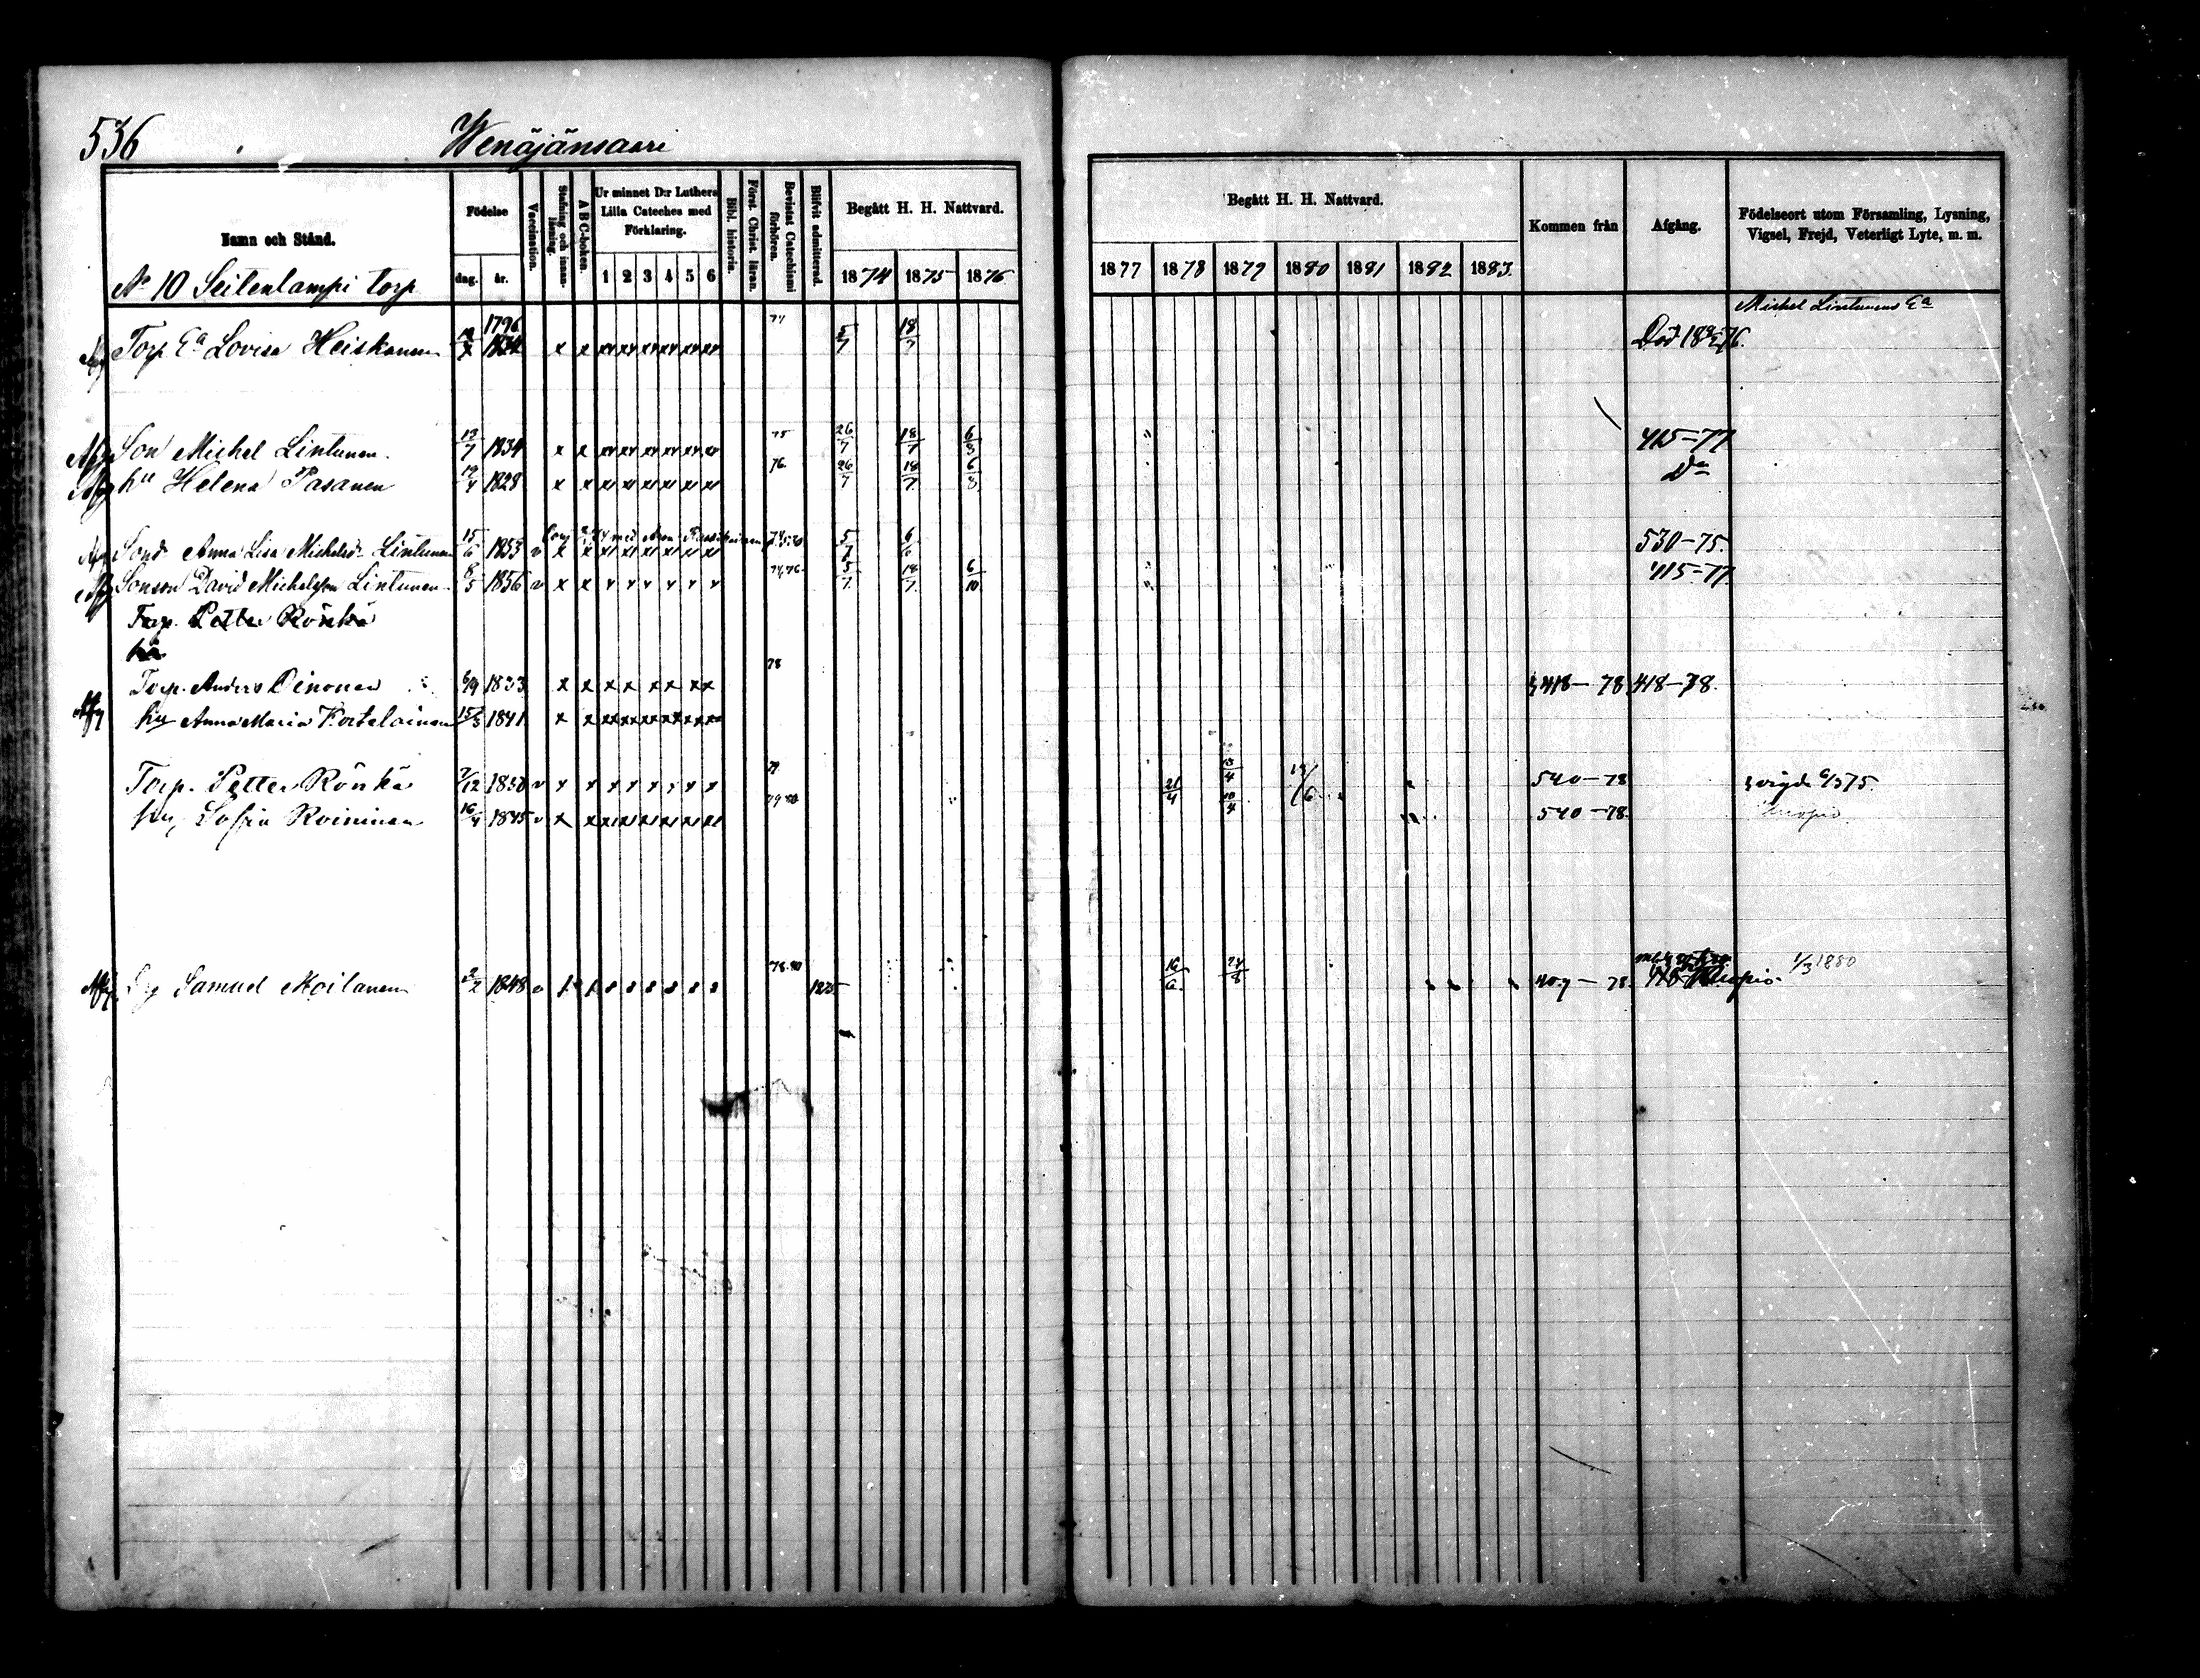 536
Wenäjänsaari
Namn och Stånd.
Födelse
dag. år.
Vaccination.
Stafning och innan-läsning.
A B C-boken.
Ur minnet D:r Luthers Lilla Cateches med Förklaring.
1 2 3 4 5 6
Bibl. historia.
Först. Christ. läran.
Bevistat Catechismi förhören.
Blifvit admitterad.
Begått H. H. Nattvard.
1874 1875 1876
Begått H. H. Nattvard.
1877 1878 1879 1880 1881 1882 1883
Kommen från
Afgång.
Födelseort utom Församling, Lysning, Vigsel, Frejd, Veterligt Lyte, m. m.
No 10 Seitenlampi torp
Michel Lintunens Ea
Afg Torp Ea Lovisa Heiskanen 1796 74 5/7 18/7 Död
Afg Son Michel Lintunen 13/7 1834 75 26/7 18/7 6/8 415-77
Afg hu Helena Pasanen 1828 76 26/7 18/7 6/8 Do
Afg Sond. Anna Lisa Michelsdr Lintunen 15/6 1853 v 5/7 530-75.
Afg Sonson David Michelsson Lintunen 8/5 1856 v 74,76 5/7 18/7 6/10 415-77
Torp. Petter Rönkä
hu
Torp. Anders Oinonen 6/9 1833 78 418-78 418-78.
Afg hu Anna Maria Kortelainen 15/5 1841
Torp. Petter Rönkä 7/12 1850 v 21/4 13/4 540-78 vigde 75.
hu, Sofia Roininen 16/4 1845 v 79 80 10/4 540-78. Kuopio
Afg Samuel Moilanen 2/2 1848 v 78.80 24/8 407-78. Kuopio 1/3 1880